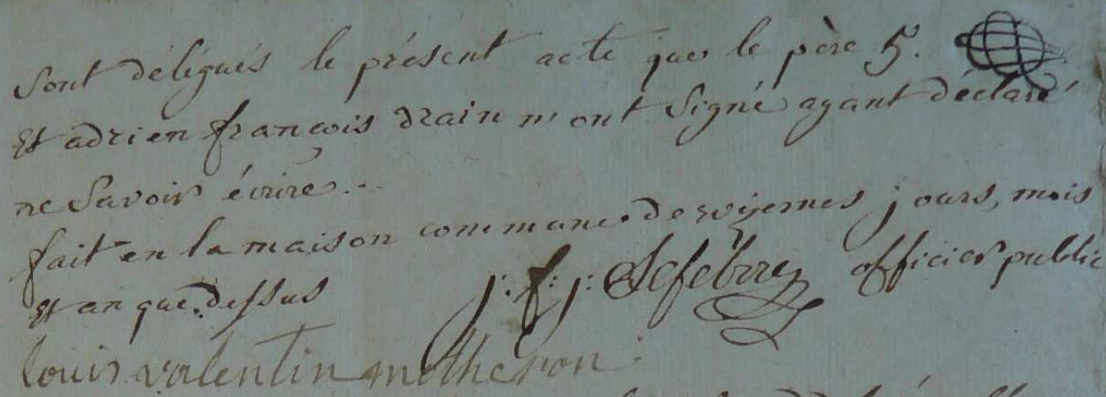 sont délégués le présent acte que le père 5.
Et adrien françois drain n'ont signé ayant déclaré
ne savoir écrire.
fait en la maison commune de wizernes jours, mois
et an que dessus j: f: j: Lefebvre officier public
louis valentin